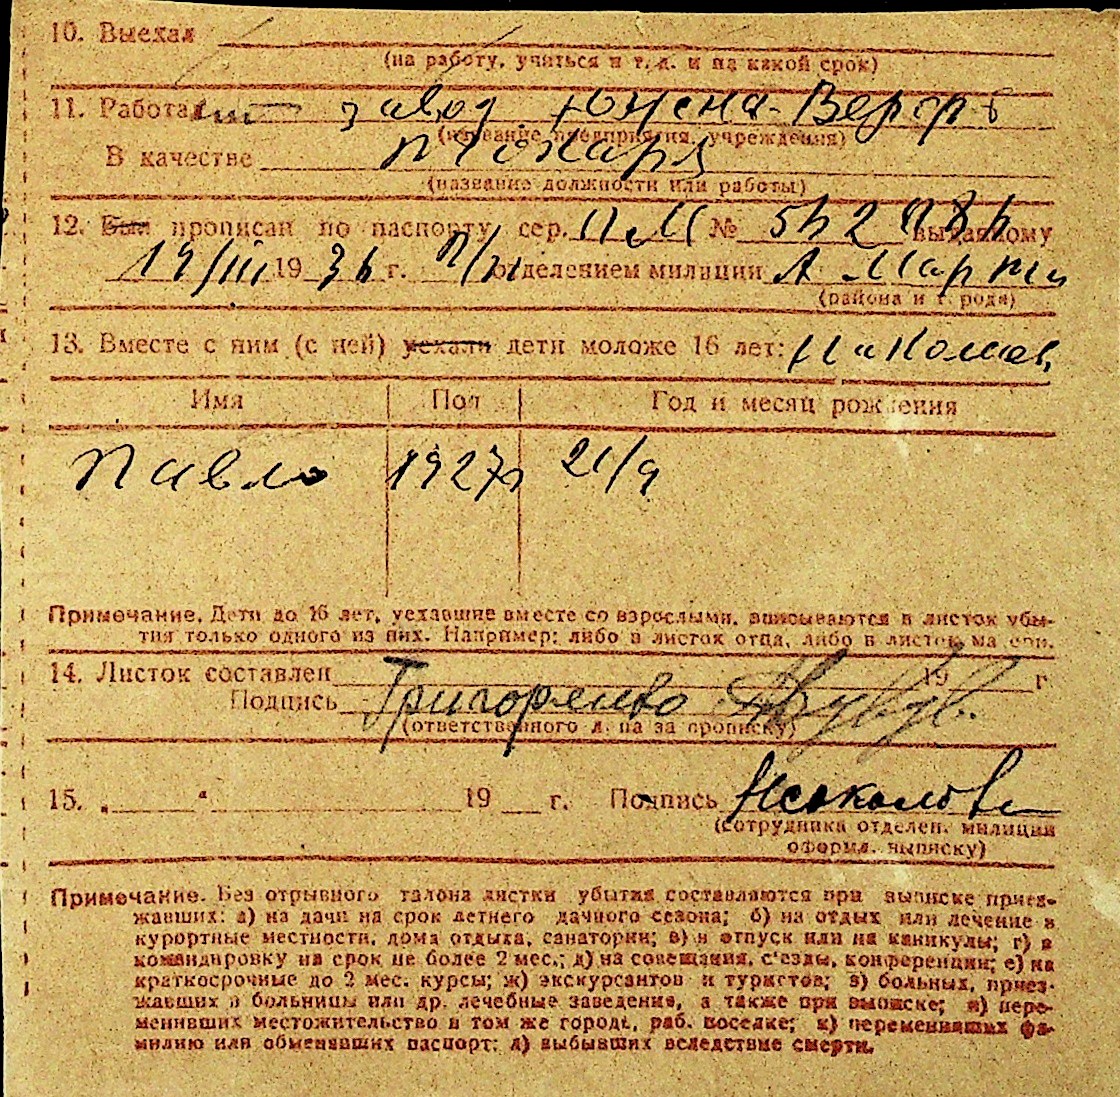 10. Выехал
(на работу, учиться и т. д. и на какой срок)
11. Работает завод
(название предприятия, учреждения)
В качестве токаря
(название должности или работы)
12. Был прописан по паспорту сер. № выданному
19/III 1936 г. отделением милиции
(района и города)
13. Вместе с ним (с ней) уехали дети моложе 16 лет: Николаев
Имя Пол Год и месяц рождения
Павло 1927г 21/9
Примечание. Дети до 16 лет, уехавшие вместе со взрослыми, вписываются в листок убы-
тия только одного из них. Например: либо в листок отца, либо в листок матери.
14. Листок составлен 19 г
Подпись Григоренко
(ответственного л-ца за прописку)
15. „ “ 19 г. Подпись
(сотрудника отделен. милиции
оформл. выписку)
Примечание. Без отрывного талона листки убытия составляются при выписке приез-
жавших: а) на дачи на срок летнего дачного сезона; б) на отдых или лечение в
курортные местности, дома отдыха, санатории; в) в отпуск или на каникулы; г) в
командировку на срок не более 2 мес.; д) на совещания, с'езды, конференции; е) на
краткосрочные до 2 мес. курсы; ж) экскурсантов и туристов; з) больных, приез-
жавших в больницы или др. лечебные заведения, а также при выписке; и) пере-
менивших местожительство в том же городе, раб. поселке; к) переменивших фа-
милию или обменявших паспорт; л) выбывших вследствие смерти.